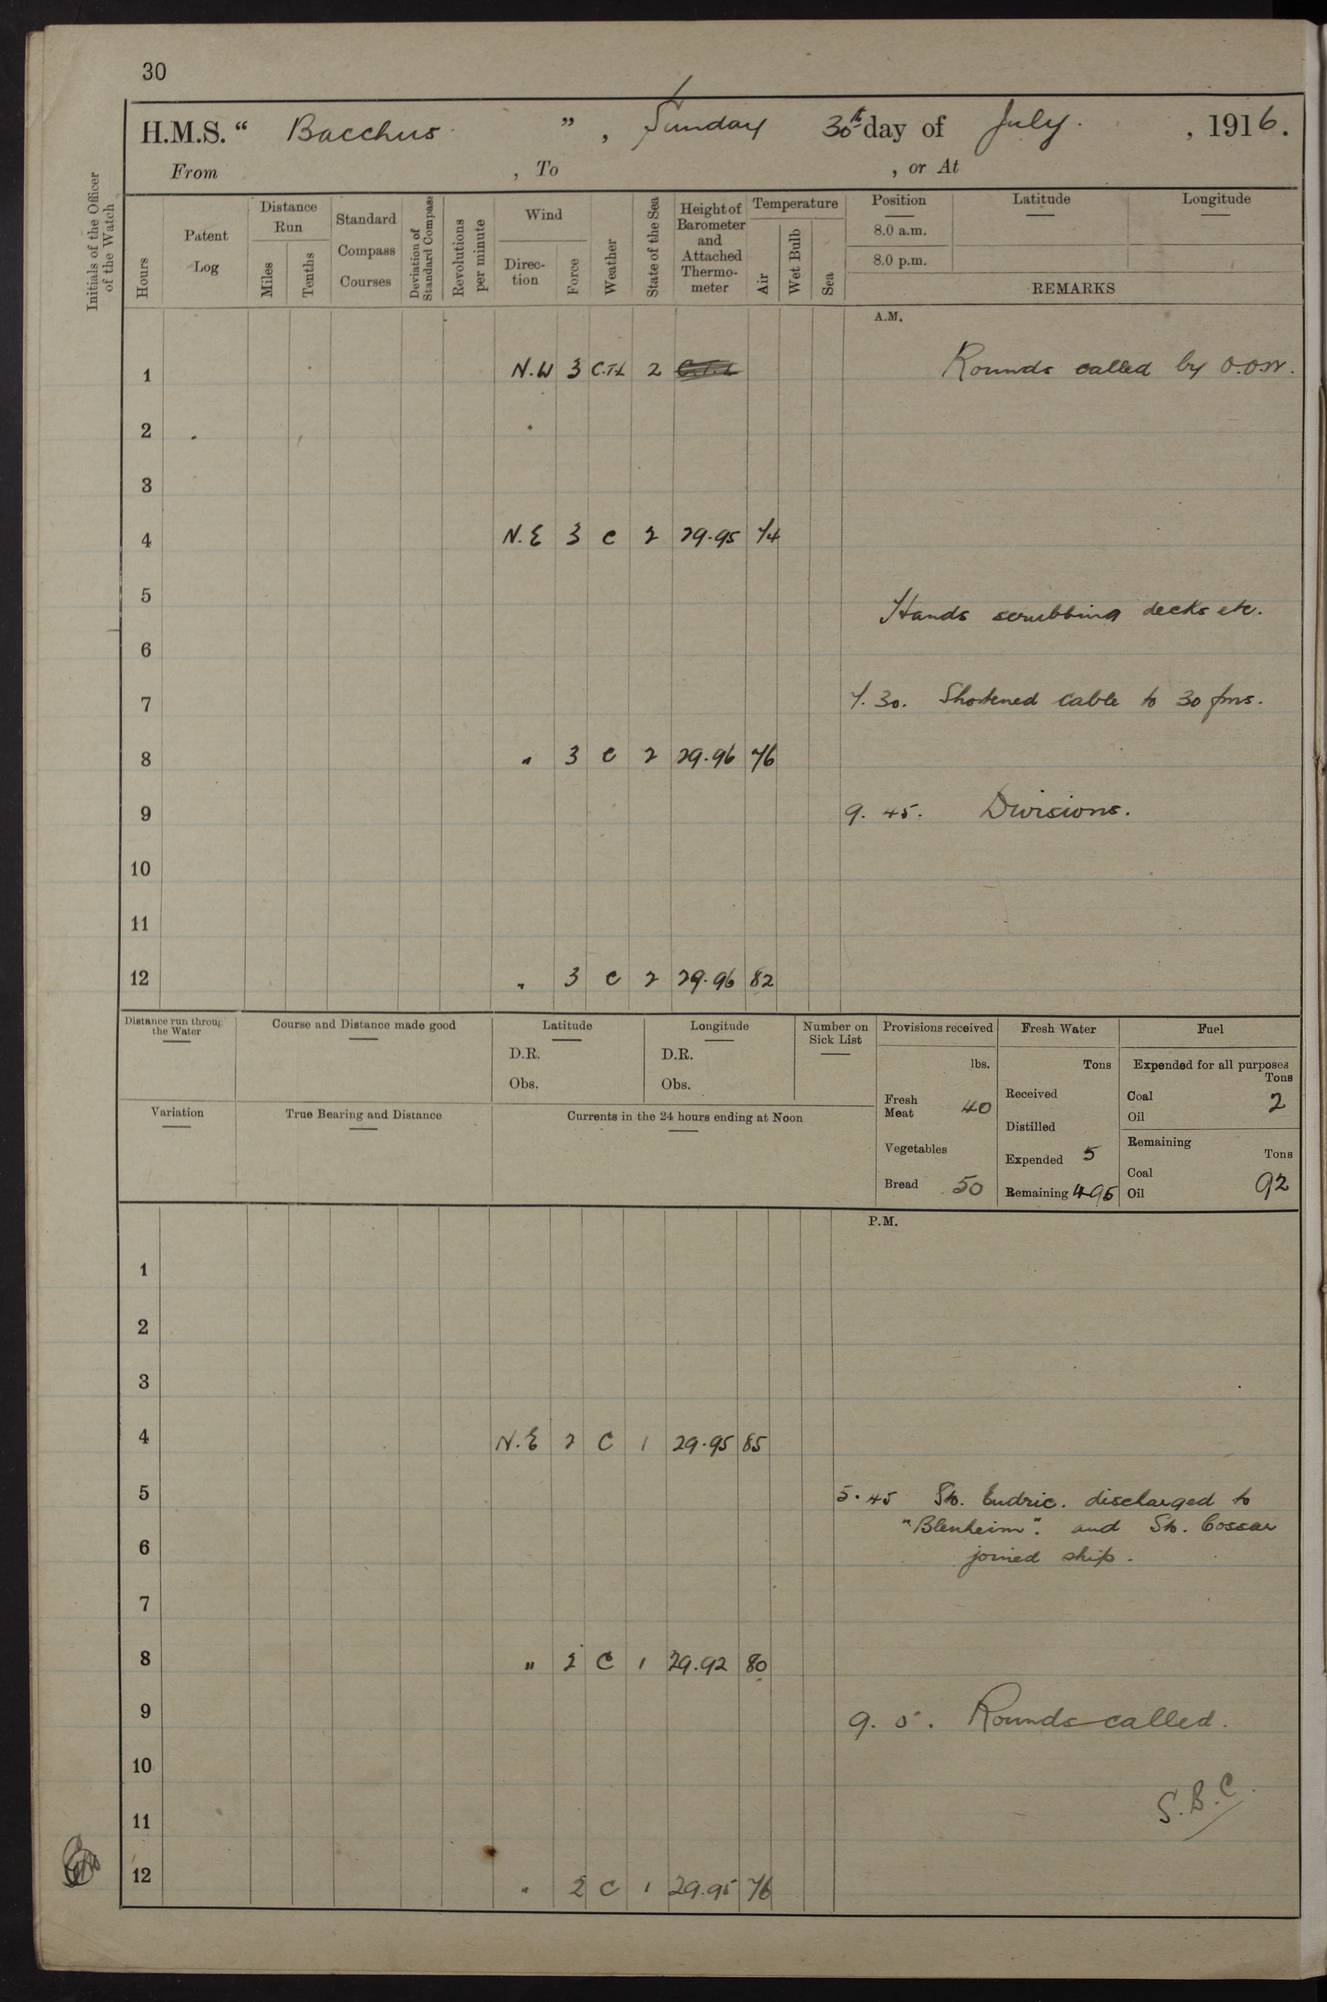 30
H.M.S. “ Bacchus ” , Sunday 30th day of July. , 1916.
From , To , or At
Initials of the Officer of the Watch
Hours
Patent Log
Distance Run
Miles
Tenths
Standard Compass Courses
Deviation of Standard Compass
Revolutions per minute
Wind
Direction
Force
Weather
State of the Sea
Height of Barometer and Attached Thermometer
Temperature
Air
Wet Bulb
Sea
Position
8.0 a.m.
8.0 p.m.
Latitude
Longitude
REMARKS
A.M.
1 N.W 3 2 Rounds called by O.O.W.
2
3
4 N.E 3 c 2 29.95 74
5 Hands scrubbing decks etc.
6
7 7.30. Shortened cable to 30 fms.
8 " 3 c 2 29.96 76
9 9.45. Divisions.
10
11
12 " 3 c 2 29.96 82
Distance run through the Water
Course and Distance made good
Latitude
D.R.
Obs.
Longitude
D.R.
Obs.
Number on Sick List
Variation
True Bearing and Distance
Currents in the 24 hours ending at Noon
Provisions received
lbs.
Fresh Meat 40
Vegetables
Bread 50
Fresh Water
Tons
Received
Distilled
Expended 5
Remaining 495
Fuel
Expended for all purposes
Tons
Coal 2
Oil
Remaining
Tons
Coal 92
Oil
P.M.
1
2
3
4 N.E 2 C 1 29.95 85
5 5.45 Sto. Endric. discharged to
"Blenheim". and Sto. Cossar
6 joined ship.
7
8 " 2 C 1 29.92 80
9 9.5. Rounds called.
10
S.B.C.
11
12 " 2 C 1 29.95 76